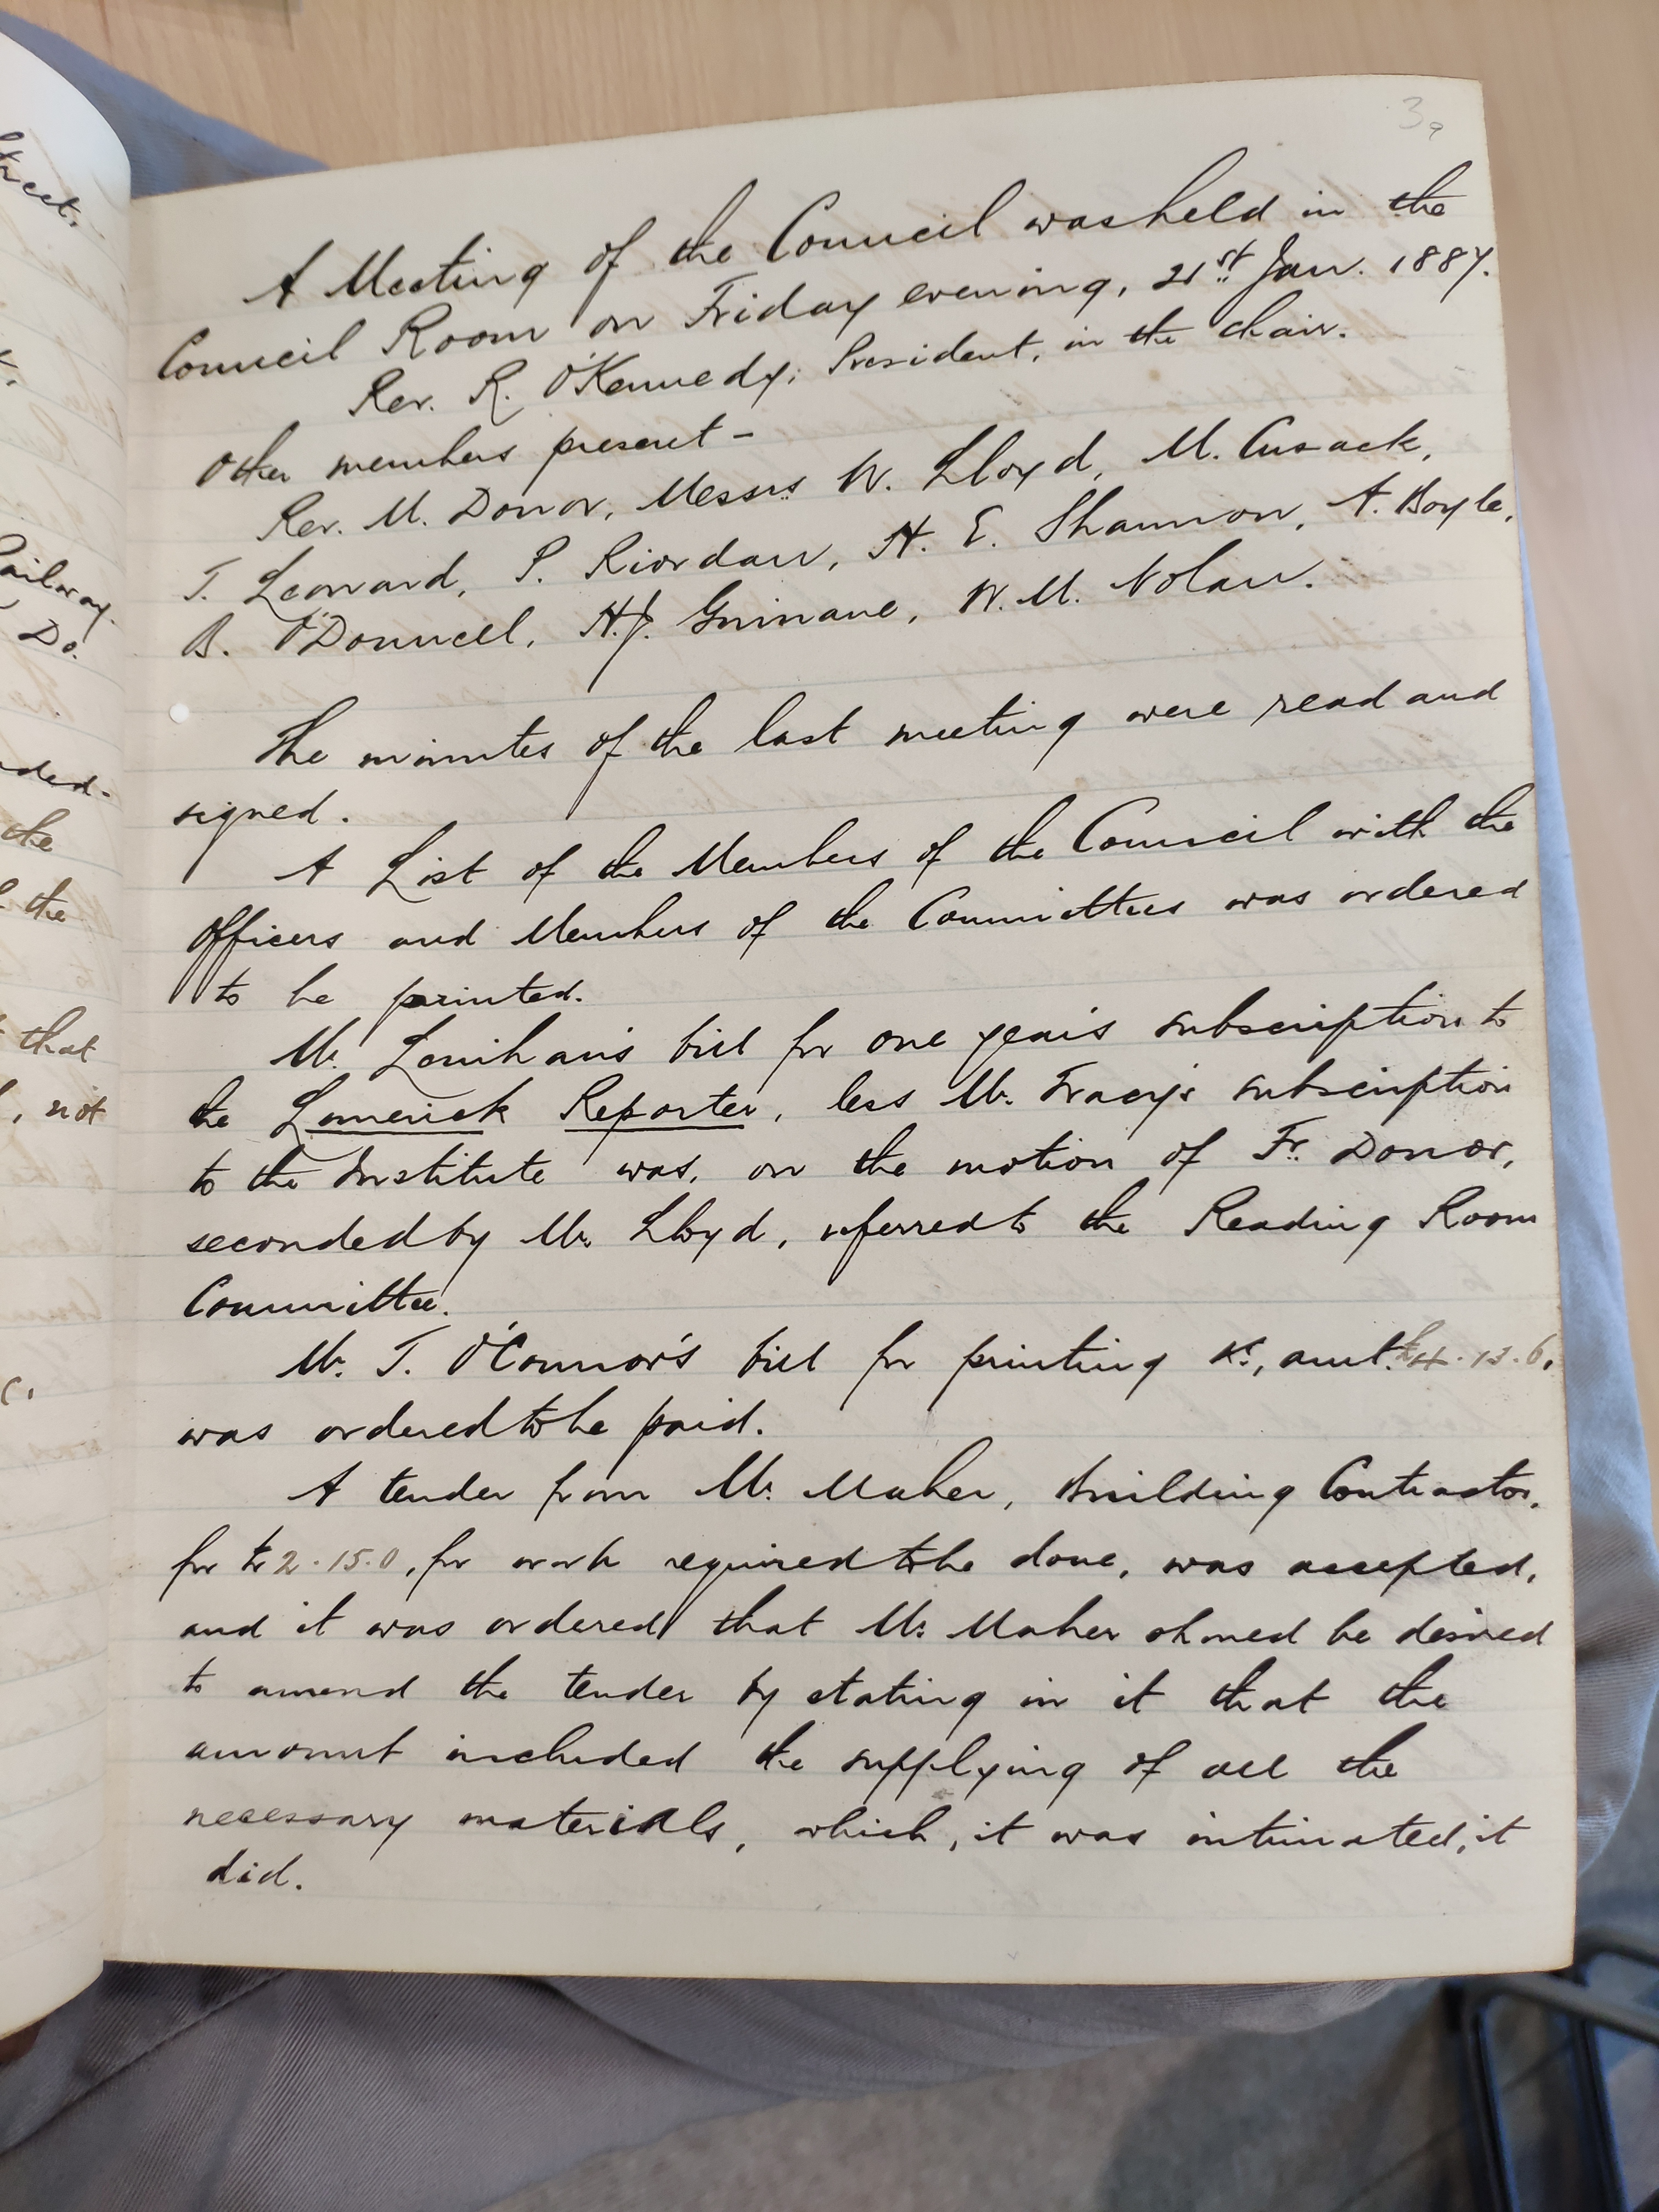 3a
A Meeting of the Council was held in the
Council Room on Friday evening, 21st Jan. 1887.
Rev. R. O'Kennedy, President, in the chair.
Other members present –
Rev. M. Donor, Messrs W. Lloyd, M. Cusack,
T. Leonard, P. Riordan, H. E. Shannon, A. Boyle,
B. O'Donnell, H.J. Guinane, W. M. Nolan.
The minutes of the last meeting were read and
signed.
A List of the Members of the Council with the
Officers and Members of the Committees was ordered
to be printed.
Mr. Lenihan's bill for one year's subscription to
the Limerick Reporter, less Mr. Tracy's subscription
to the Institute was, on the motion of Fr. Donor,
seconded by Mr. Lloyd, referred to the Reading Room
Committee.
Mr. T. O'Connor's bill for printing &c, amt. £4.13.6,
was ordered to be paid.
A tender from Mr. Maher, Building Contractor,
for £2.15.0, for work required to be done, was accepted,
and it was ordered that Mr. Maher should be desired
to amend the tender by stating in it that the
amount included the supplying of all the
necessary materials, which, it was intimated, it
did.
street.
Railway
Do.
the
the
that
, not